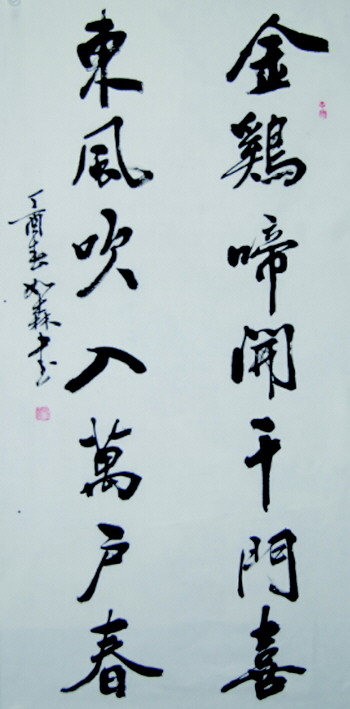 金鷄啼開千門喜
東風吹入萬戶春
丁酉春如森书